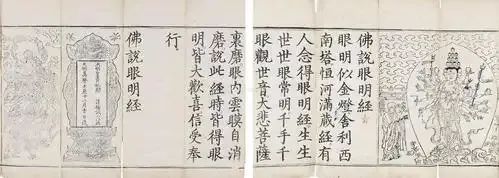 佛說眼明經
眼明似金燈舍利西
南塔恒河滿藏經有
人念得眼明經生生
世世眼常明千手千
眼觀世音大悲菩薩
裏磨眼內雲膜自消
磨說此經時皆得眼
明皆大歡喜信受奉
行
佛說眼明經